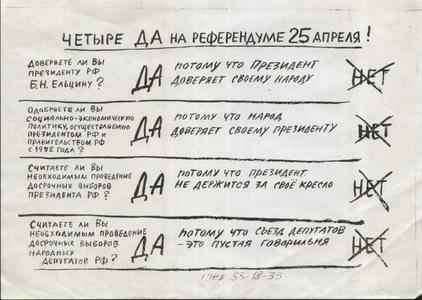 ЧЕТЫРЕ ДА НА РЕФЕРЕНДУМЕ 25 АПРЕЛЯ!
ДОВЕРЯЕТЕ ЛИ ВЫ
ПРЕЗИДЕНТУ РФ
Б.Н. ЕЛЬЦИНУ?
ДА
ПОТОМУ ЧТО ПРЕЗИДЕНТ
ДОВЕРЯЕТ СВОЕМУ НАРОДУ
НЕТ
ОДОБРЯЕТЕ ЛИ ВЫ
СОЦИАЛЬНО-ЭКОНОМИЧЕСКУЮ
ПОЛИТИКУ, ОСУЩЕСТВЛЯЕМУЮ
ПРЕЗИДЕНТОМ РФ И
ПРАВИТЕЛЬСТВОМ РФ
С 1992 ГОДА?
ДА
ПОТОМУ ЧТО НАРОД
ДОВЕРЯЕТ СВОЕМУ ПРЕЗИДЕНТУ
НЕТ
СЧИТАЕТЕ ЛИ ВЫ
НЕОБХОДИМЫМ ПРОВЕДЕНИЕ
ДОСРОЧНЫХ ВЫБОРОВ
ПРЕЗИДЕНТА РФ?
ДА
ПОТОМУ ЧТО ПРЕЗИДЕНТ
НЕ ДЕРЖИТСЯ ЗА СВОЁ КРЕСЛО
НЕТ
СЧИТАЕТЕ ЛИ ВЫ
НЕОБХОДИМЫМ ПРОВЕДЕНИЕ
ДОСРОЧНЫХ ВЫБОРОВ
НАРОДНЫХ
ДЕПУТАТОВ РФ?
ДА
ПОТОМУ ЧТО СЪЕЗД ДЕПУТАТОВ
- ЭТО ПУСТАЯ ГОВОРИЛЬНЯ
НЕТ
55-18-35